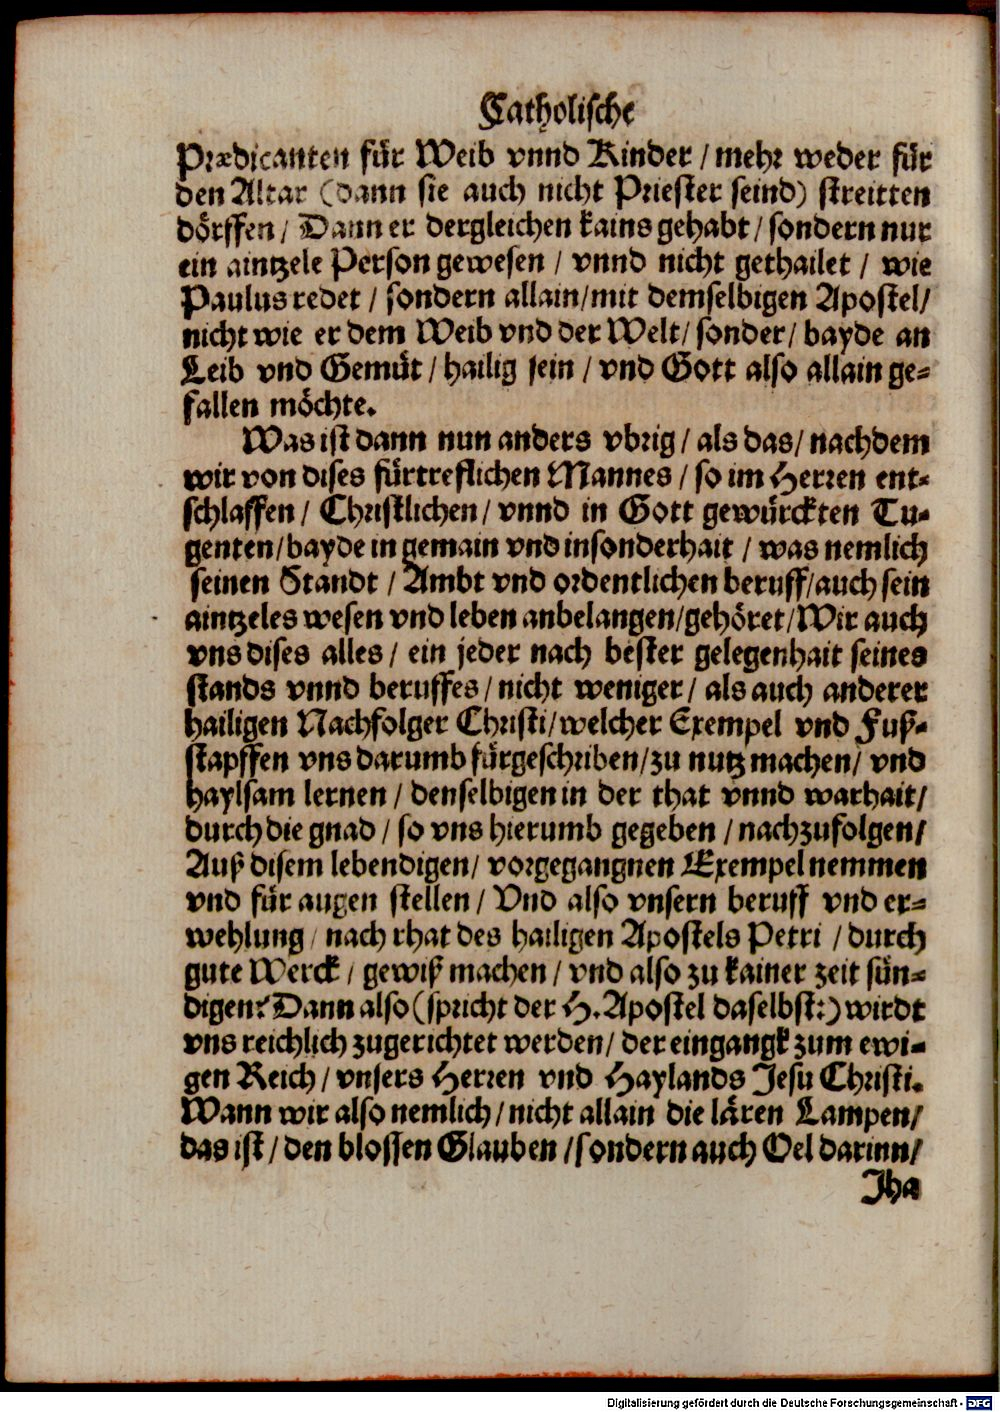 Catholische
Prædicanten für Weib vnnd Kinder / mehr weder für
den Altar (dann sie auch nicht Priester seind) streitten
dörffen / Dann er dergleichen kains gehabt / sondern nur
ein aintzele Person gewesen / vnnd nicht gethailet / wie
Paulus redet / sondern allain / mit demselbigen Apostel /
nicht wie er dem Weib vnd der Welt / sonder / bayde an
Leib vnd Gemüt / hailig sein / vnd Gott also allain ge-
fallen möchte.
Was ist dann nun anders vbrig / als das / nachdem
wir von dises fürtreflichen Mannes / so im Herren ent-
schlaffen / Christlichen / vnnd in Gott gewürckten Tu-
genten / bayde in gemain vnd insonderhait / was nemlich
seinen Standt / Ambt vnd ordentlichen beruff / auch sein
aintzeles wesen vnd leben anbelangen / gehöret / Wir auch
vns dises alles / ein jeder nach bester gelegenhait seines
stands vnnd beruffes / nicht weniger / als auch anderer
hailigen Nachfolger Christi / welcher Exempel vnd Fuß-
stapffen vns darumb fürgeschriben / zu nutz machen / vnd
haylsam lernen / denselbigen in der that vnnd warhait /
durch die gnad / so vns hierumb gegeben / nachzufolgen /
Auß disem lebendigen / vorgegangnen Exempel nemmen
vnd für augen stellen / Vnd also vnsern beruff vnd er-
wehlung / nach rhat des hailigen Apostels Petri / durch
gute Werck / gewiß machen / vnd also zu kainer zeit sün-
digen? Dann also (spricht der H. Apostel daselbst:) wirdt
vns reichlich zugerichtet werden / der eingangk zum ewi-
gen Reich / vnsers Herren vnd Haylands Jesu Christi.
Wann wir also nemlich / nicht allain die lären Lampen /
das ist / den blossen Glauben / sondern auch Oel darinn /
Jha
Digitalisierung gefördert durch die Deutsche Forschungsgemeinschaft - DFG